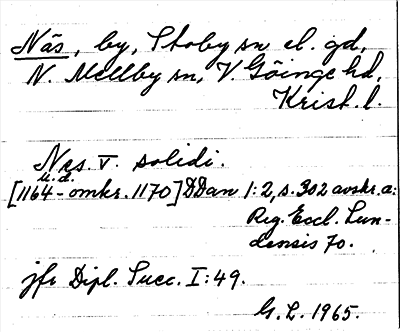 Näs, by, Stoby sn el. gd,
N. Mellby sn, V. Göinge hd,
Krist. l.
Nes. V. solidi.
u.d.
[1164-omkr. 1170] DDan 1:2, s. 302 avskr. a:
Reg. Eccl. Lun-
densis 70.
jfr Dipl. Suec. I:49.
G. L. 1965.